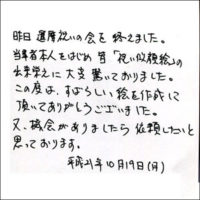 昨日 還暦祝いの会を 終えました。
当事者本人をはじめ 皆「祝い似顔絵」の
出来栄えに 大変 驚いておりました。
この度は、すばらしい 絵を作成に
頂いてありがとうございました。
又、機会がありましたら 依頼したいと
思っております。
平成21年10月19日(月)